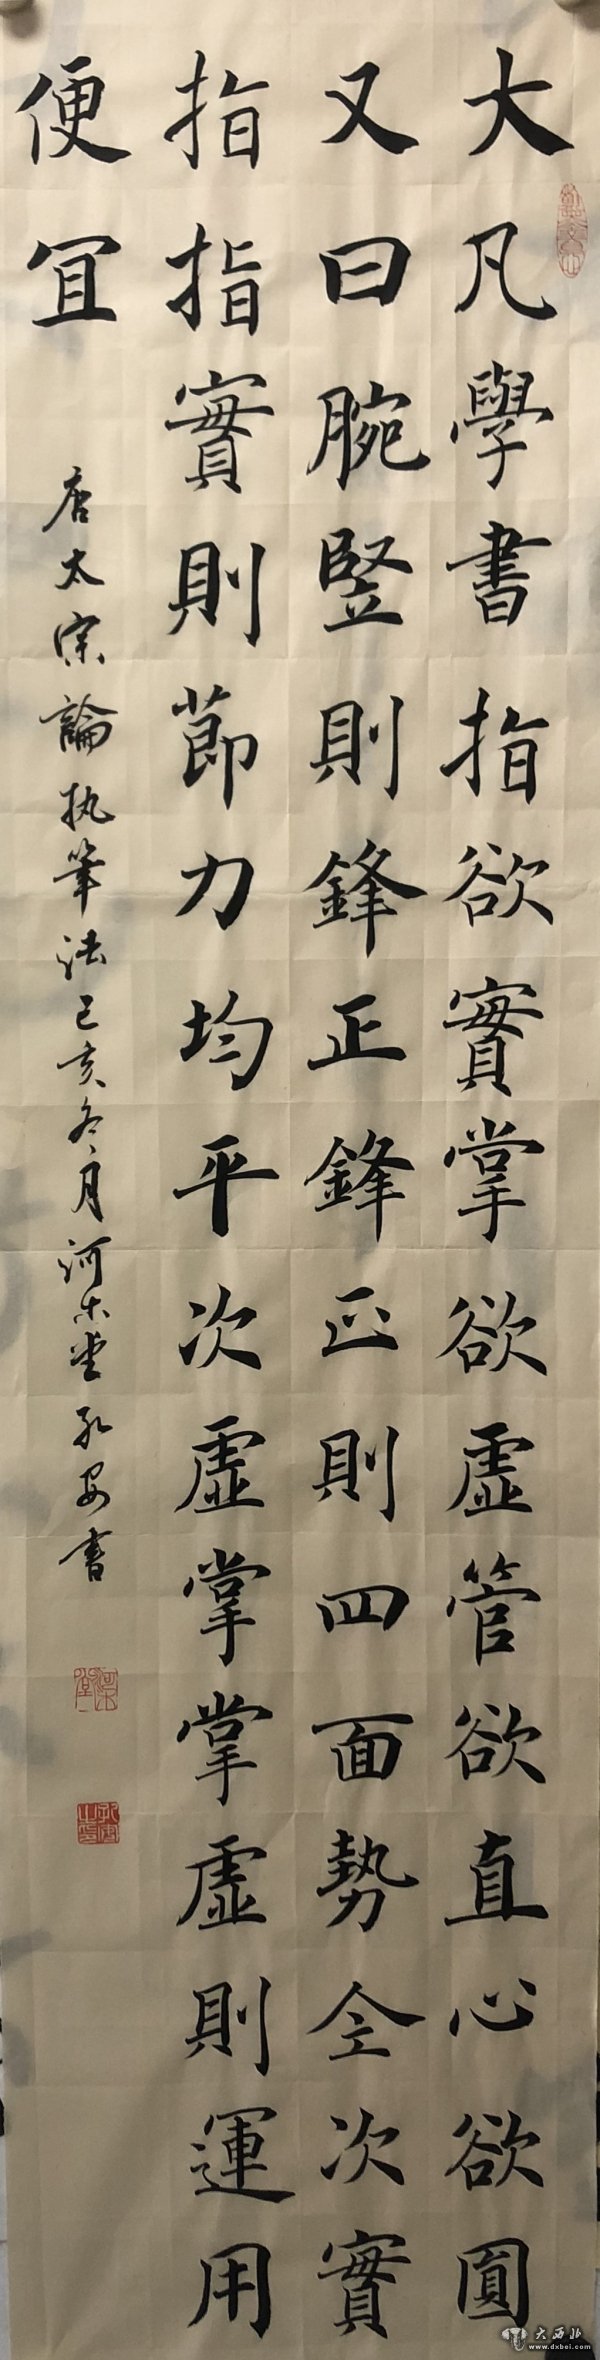 大凡學書指欲實掌欲虛管欲直心欲圓
又曰腕竪則鋒正鋒正則四面勢全次實
指指實則節力均平次虛掌掌虛則運用
便宜
唐太宗論执筆法己亥冬月河木堂孔安書
大西北
www.dxbei.com